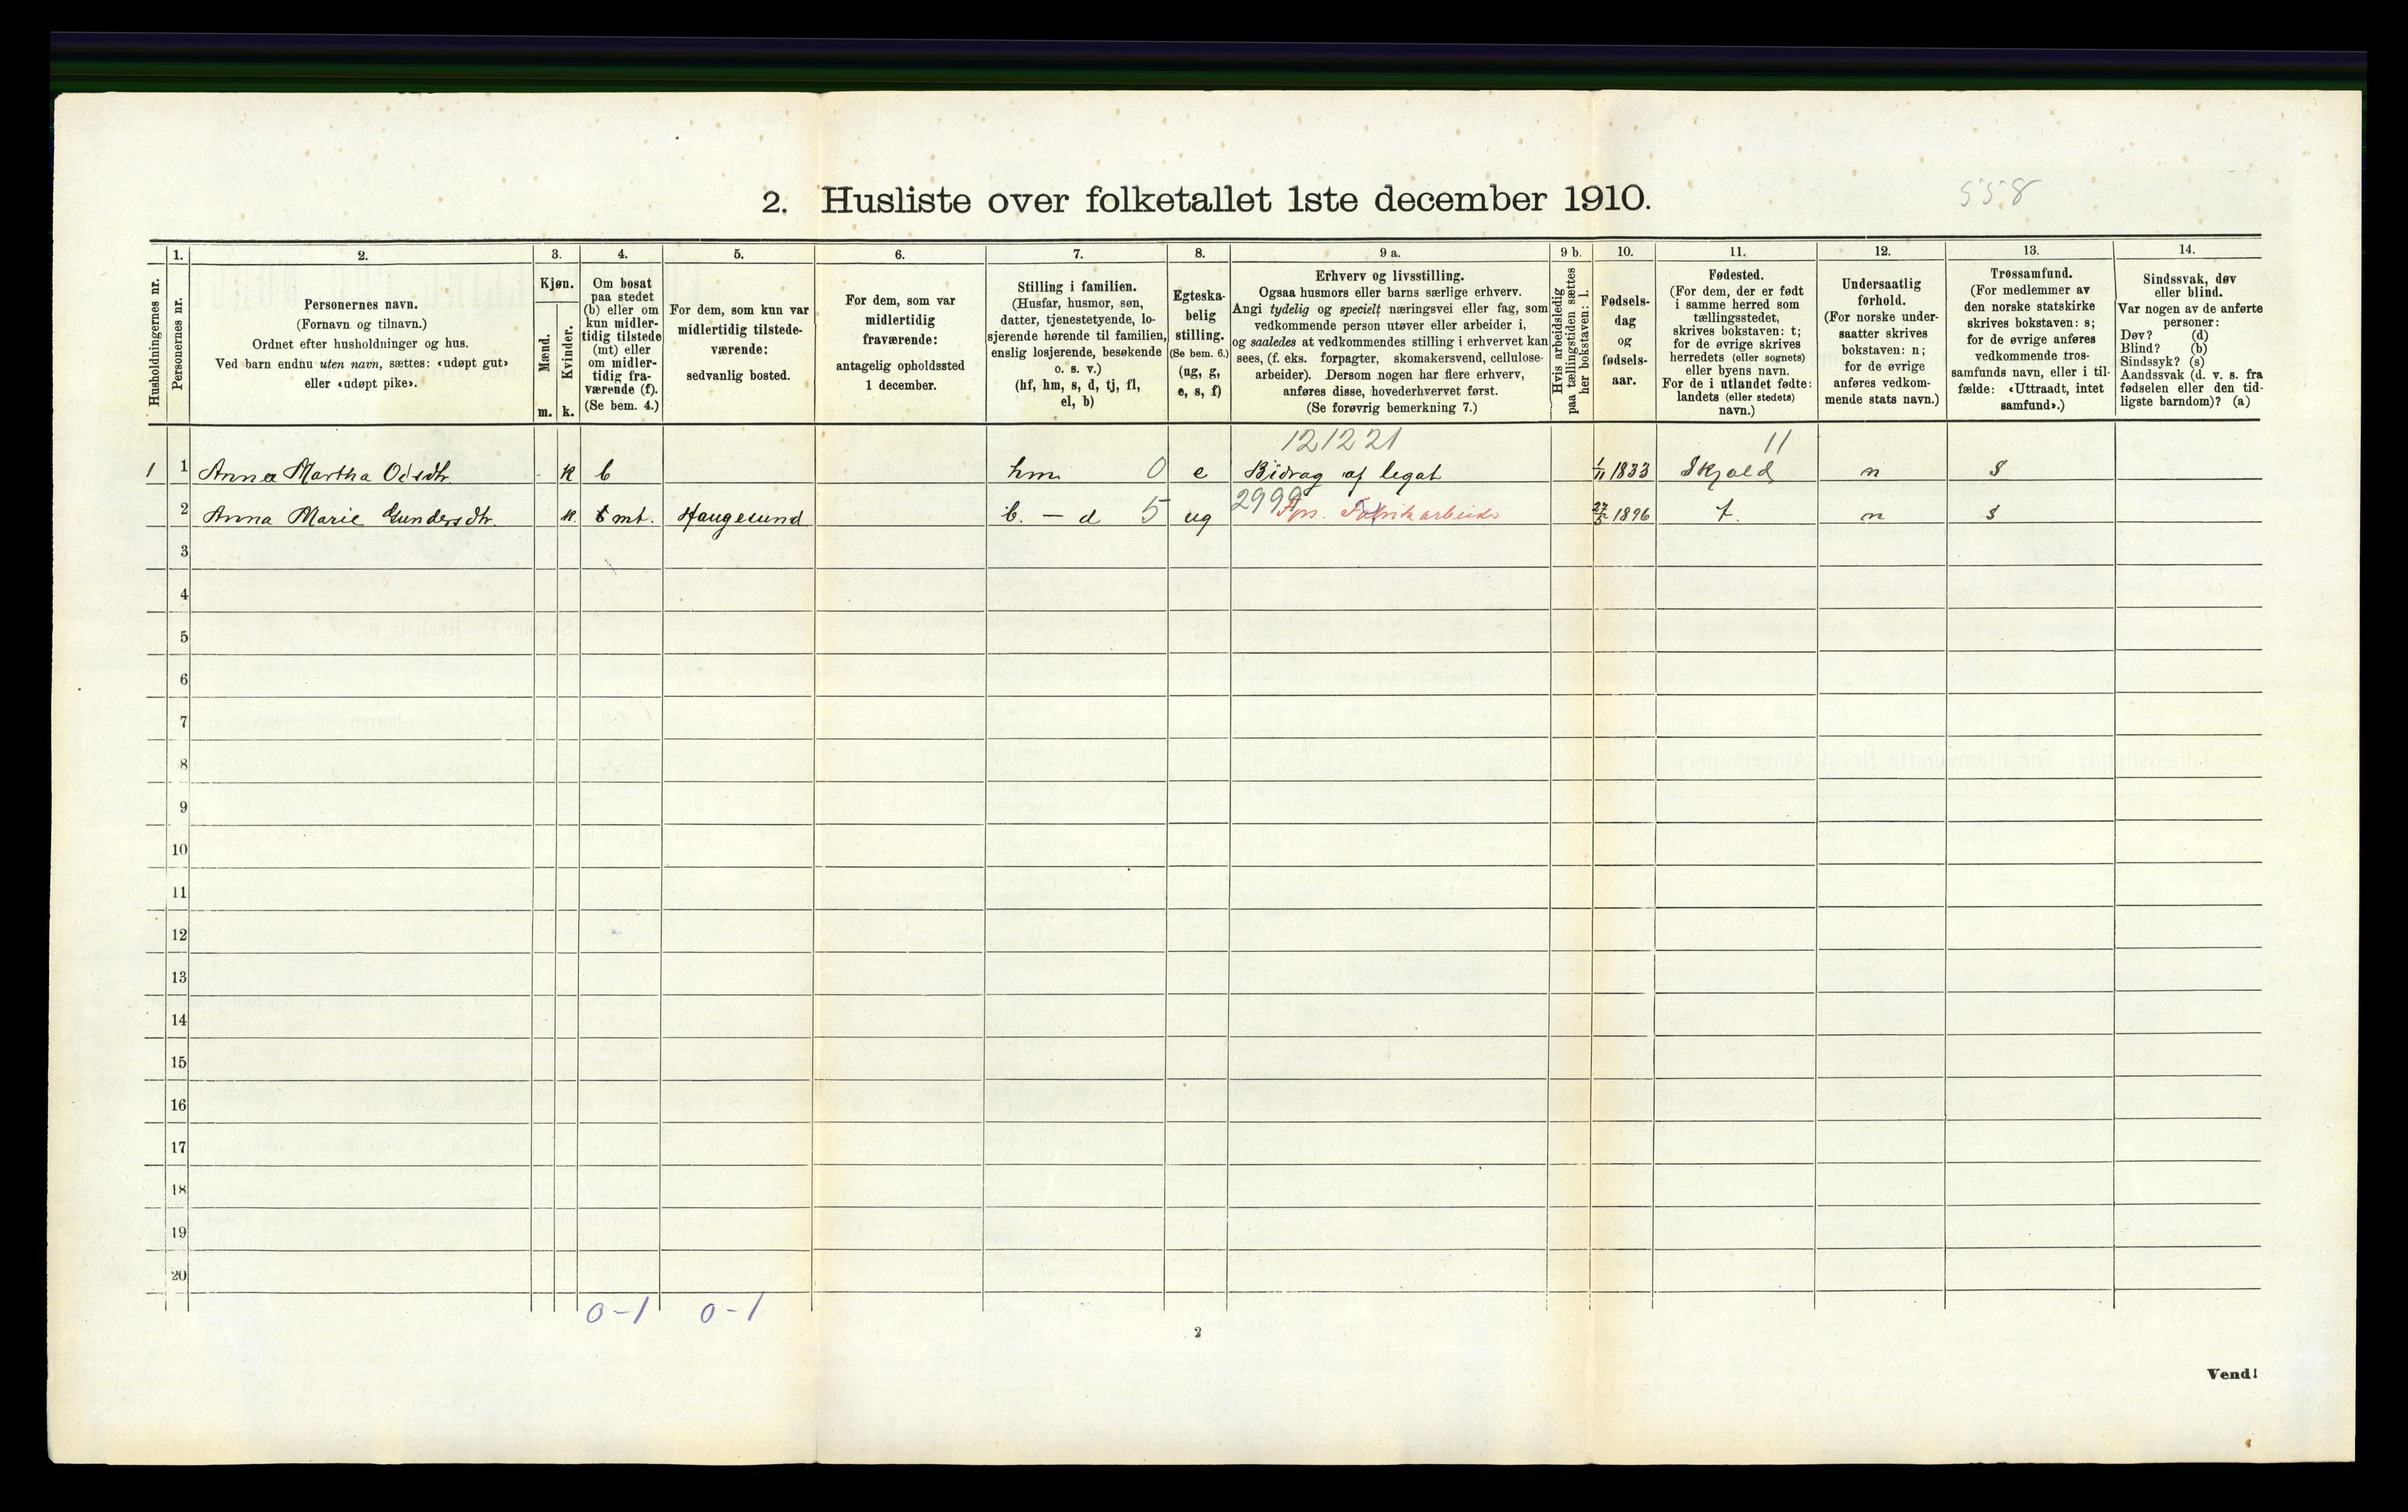 2. Husliste over folketallet 1ste december 1910.
558
Husholdningernes nr.
1.
Personernes nr.
2.
Personernes navn.
(Fornavn og tilnavn.)
Ordnet efter husholdninger og hus.
Ved barn endnu uten navn, sættes: «udøpt gut»
eller «udøpt pike».
3.
Kjøn.
Mænd.
m.
Kvinder.
k.
4.
Om bosat
paa stedet
(b) eller om
kun midler-
tidig tilstede
(mt) eller
om midler-
tidig fra-
værende (f).
(Se bem. 4.)
5.
For dem, som kun var
midlertidig tilstede-
værende:
sedvanlig bosted.
6.
For dem, som var
midlertidig
fraværende:
antagelig opholdssted
1 december.
7.
Stilling i familien.
(Husfar, husmor, søn,
datter, tjenestetyende, lo-
sjerende hørende til familien,
enslig losjerende, besøkende
o. s. v.)
(hf, hm, s, d, tj, fl,
el, b)
8.
Egteska-
belig
stilling.
(Se bem. 6.)
(ug, g,
e, s, f)
9 a.
Erhverv og livsstilling.
Ogsaa husmors eller barns særlige erhverv.
Angi tydelig og specielt næringsvei eller fag, som
vedkommende person utøver eller arbeider i,
og saaledes at vedkommendes stilling i erhvervet kan
sees, (f. eks. forpagter, skomakersvend, cellulose-
arbeider). Dersom nogen har flere erhverv,
anføres disse, hovederhvervet først.
(Se forøvrig bemerkning 7.)
9 b.
Hvis arbeidsledig
paa tællingstiden sættes
her bokstaven: l.
10.
Fødsels-
dag
og
fødsels-
aar.
11.
Fødested.
(For dem, der er født
i samme herred som
tællingsstedet,
skrives bokstaven: t;
for de øvrige skrives
herredets (eller sognets)
eller byens navn.
For de i utlandet fødte:
landets (eller stedets)
navn.)
12.
Undersaatlig
forhold.
(For norske under-
saatter skrives
bokstaven: n;
for de øvrige
anføres vedkom-
mende stats navn.)
13.
Trossamfund.
(For medlemmer av
den norske statskirke
skrives bokstaven: s;
for de øvrige anføres
vedkommende tros-
samfunds navn, eller i til-
fælde: «Uttraadt, intet
samfund».)
14.
Sindssvak, døv
eller blind.
Var nogen av de anførte
personer:
Døv? (d)
Blind? (b)
Sindssyk? (s)
Aandssvak (d. v. s. fra
fødselen eller den tid-
ligste barndom)? (a)
121221 11
1 1 Anna Martha Odsdtr. k b hm 0 e Bidrag af legat 1/11 1833 Skjold n s
2999
2 Anna Marie Gundersdtr. k. mt. Haugesund b. — d 5 ug Fps. Fabrikarbeider 27/5 1896 t. n s
3
4
5
6
7
8
9
10
11
12
13
14
15
16
17
18
19
20
0-1 0-1
2
Vend!